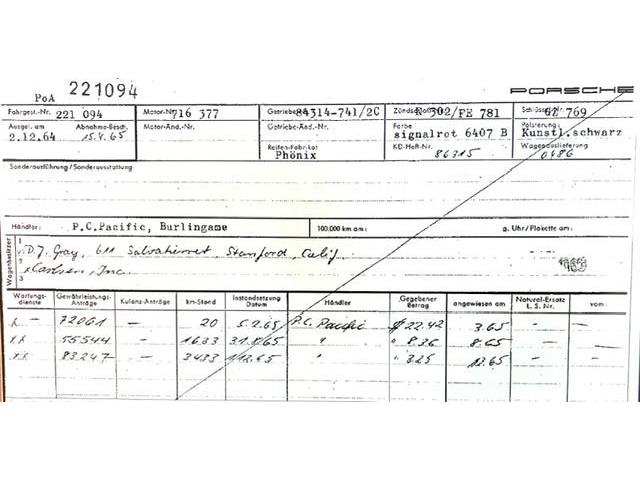 PoA 221094
PORSCHE
Fahrgest.-Nr. 221 094 Motor-Nr. 716 377 Getriebe-Nr. 84314-741/2C K 302/FE 781 769
Ausgel. am Abnahme-Besch. Motor-Änd.-Nr.: Getriebe-Änd.-Nr: Farbe Polsterung:
2.12.64 15.4.65 signalrot 6407 B Kunstl.schwarz
Reifen-Fabrikat KD-Heft-Nr. 86315 Wagenauslieferung
Phönix 0486
Sonderausführung / Sonderausstattung
Händler: P.C.Pacific, Burlingame 100.000 km am: g. Uhr/Plakette am:
Wagenbesitzer
1 D.J. Gray, 611 Stanford, Calif
2 Carlsen, Inc.
3
Wartungsdienste Gewährleistungs-Anträge Kulanz-Anträge km-Stand Instandsetzung Datum Händler Gegebener Betrag angewiesen am Natural-Ersatz L. S. Nr. vom:
x – 72061 – 20 5.2.65 P.C. Pacific $ 22.42 3.65 – –
xx 55544 – 1633 " " 8.36 8.65 – –
xx 83247 – 3433 " " 3.25 – –